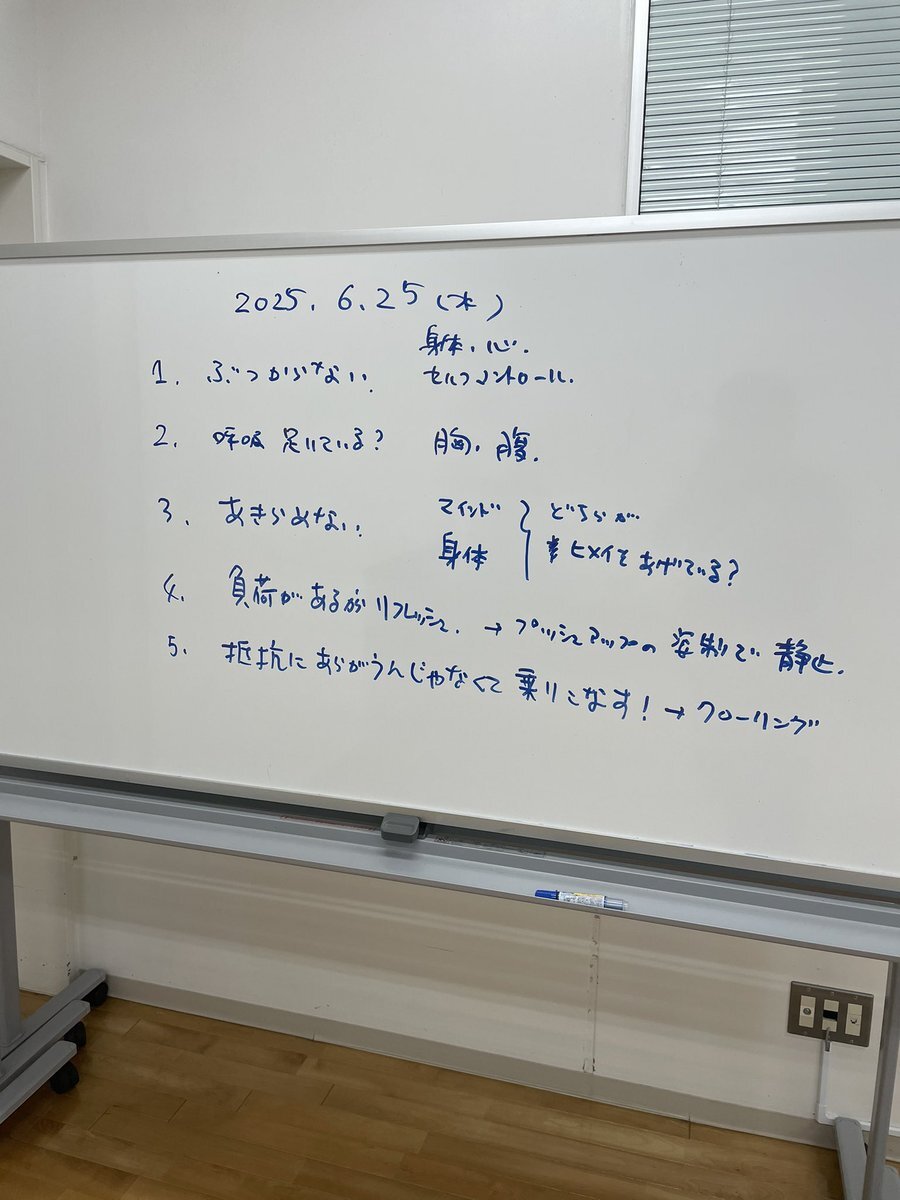 2025. 6.25 (水)
身体、心.
1. ぶつからない. セルフコントロール.
2. 呼吸 足りている? 胸、腹.
3. あきらめない. マインド } どちらが
身体 ヒメイをあげている?
4. 負荷があるがリフレッシュ. → プッシュアップの姿制で 静止.
5. 抵抗にあらがうんじゃなくて 乗りこなす! → クローリング